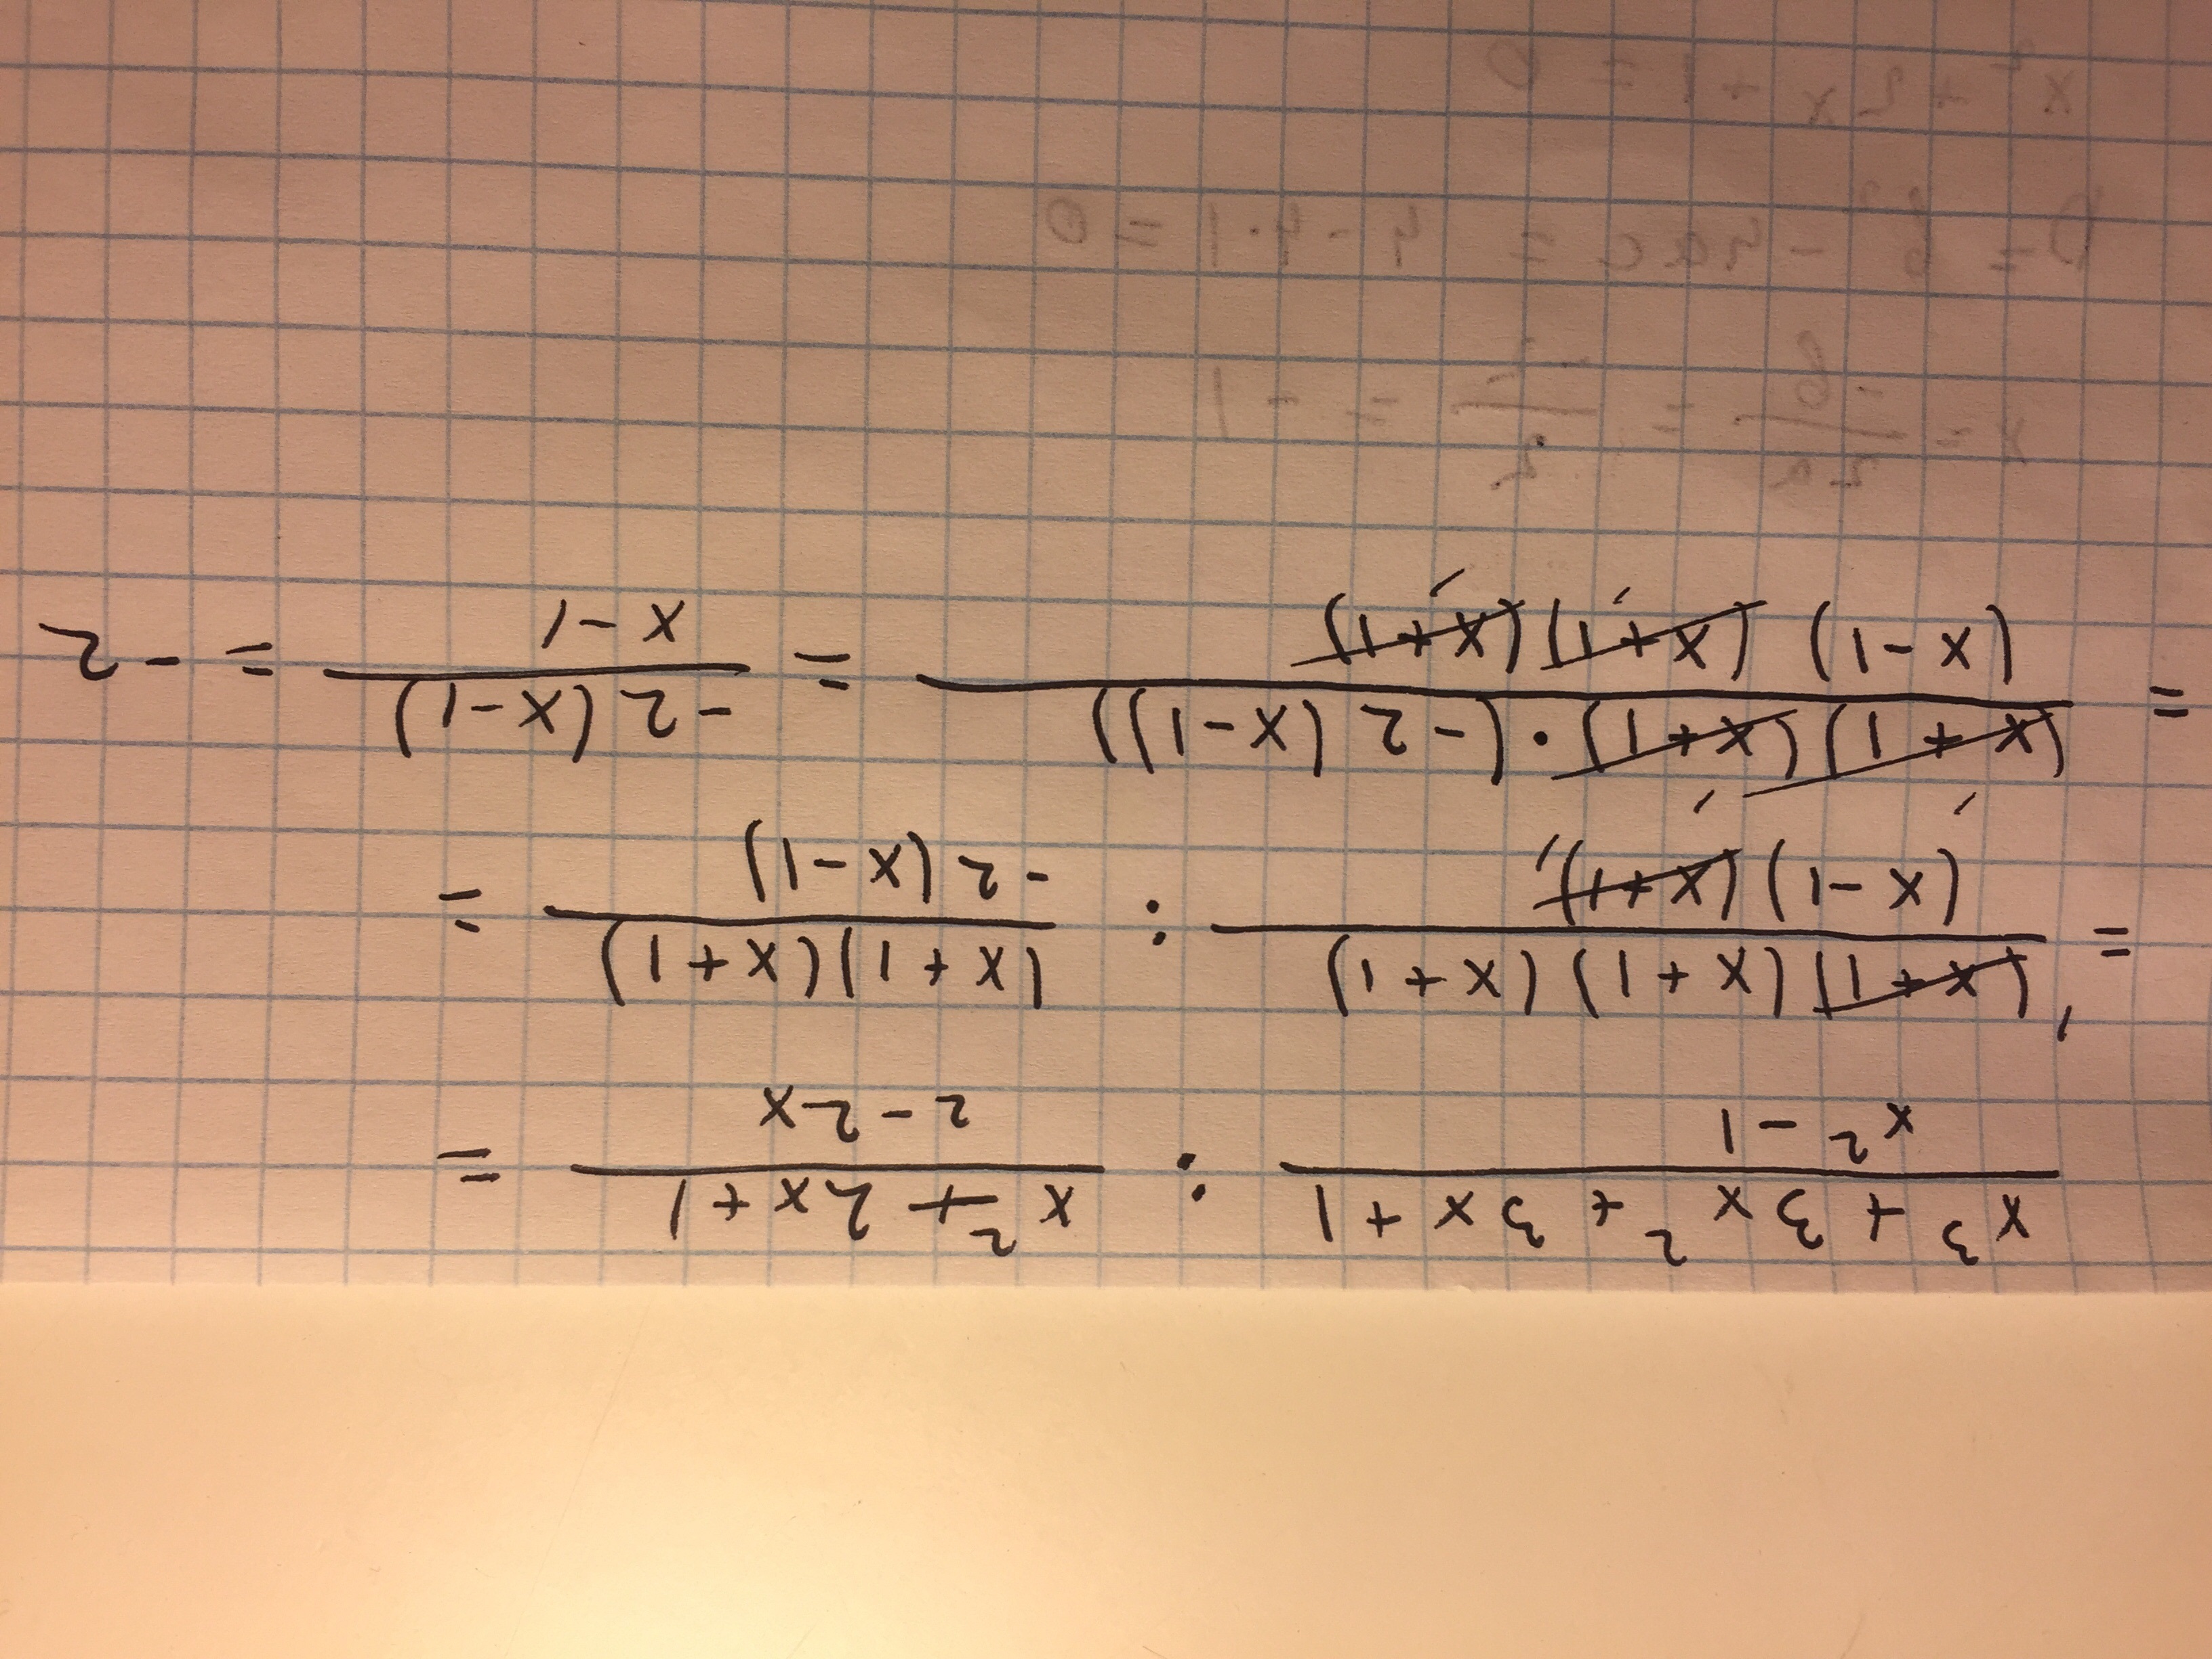 (x³ + 3x² + 3x + 1)/(x² - 1) : (x² + 2x + 1)/(2 - 2x) =
= ((x + 1)(x + 1)(x + 1))/((x - 1)(x + 1)) : ((x + 1)(x + 1))/(-2(x - 1)) =
= ((x + 1)(x + 1) · (-2(x - 1)))/((x - 1)(x + 1)(x + 1)) = (-2(x - 1))/(x - 1) = -2
x = -b/2a = -2/2 = -1
D = b² - 4ac = 4 - 4·1 = 0
x² + 2x + 1 = 0